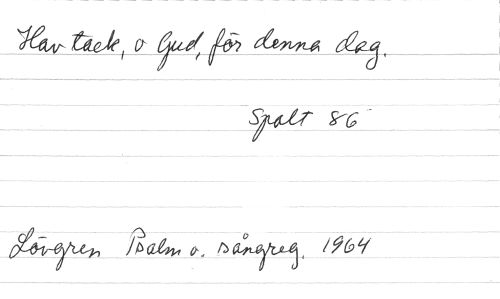 Hav tack, o Gud, för denna dag.
Spalt 86
Lövgren Psalm o. sångreg. 1964